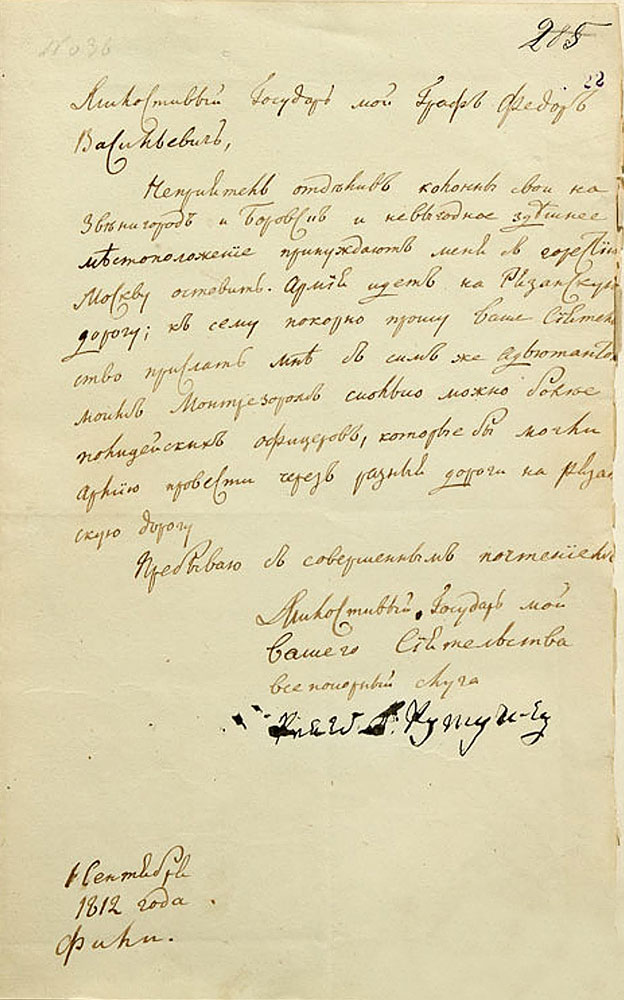 № 36
205
22
Милостивый Государь мой Графъ Федоръ
Васильевичь,
Неприятель отделивъ колонны свои на
Звенигородъ и Боровскъ и невыгодное здешнее
мѣстоположение принуждаютъ меня съ горестію
Москву оставить. Армія идетъ на Рязанскую
дорогу; къ сему покорно прошу Ваше Сиятель
ство прислать мнѣ съ симъ же адъютантомъ
моимъ Монтрезоромъ сколько можно более
полицейскихъ офицеровъ, которые бы могли
Армію провести через разныя дороги на Рязан
скую дорогу
Пребываю съ совершеннымъ почтениемъ
Милостивый Государь мой
Вашего Сиятельства
всепокорный слуга
Князь Г. Кутузовъ
1 Сентября
1812 года
Фили.